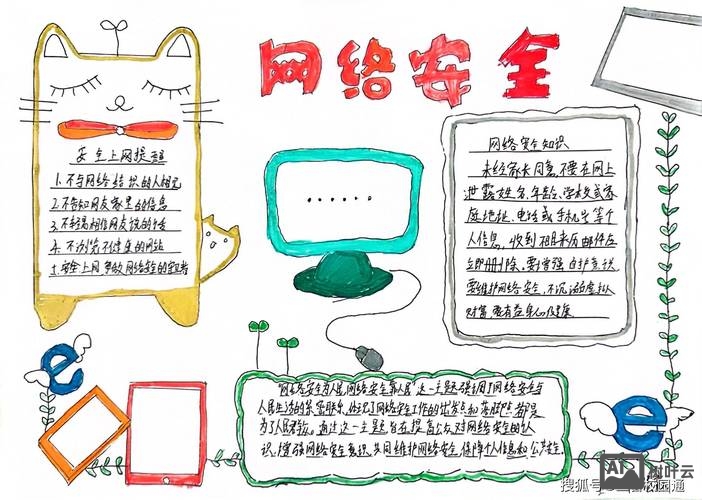 网络安全
安全上网提
1.不与网络结识的人相见
2.不告知网友家里的信息
3.不轻易相信网友说的
4.不浏览不健康的网站
5.安全上网 争做网络安全的
网络安全知识
未经家长同意,不要在网上
泄露姓名、年龄、学校或家
庭地址、电话或手机号等个
人信息。收到 来历 邮件应
立即删除。要增强自护意识
要维护网络安全,不沉溺虚拟
时 要有益身心健康
"网络安全为人民,网络安全靠人民"这一主题强调了网络安全与
人民生活的紧密联系,体现了网络安全工作的出发点和落脚点都是
为了人民 。通过这一主题旨在提高公众对网络安全的认
识,增强网络安全意识,共同维护网络安全,保障个人信息和公共安全
搜狐号 校园通
树叶云